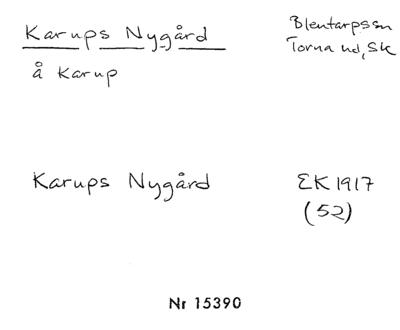 Karups Nygård
å Karup
Blentarps sn
Torna hd, Sk
Karups Nygård
EK 1917
(52)
Nr 15390